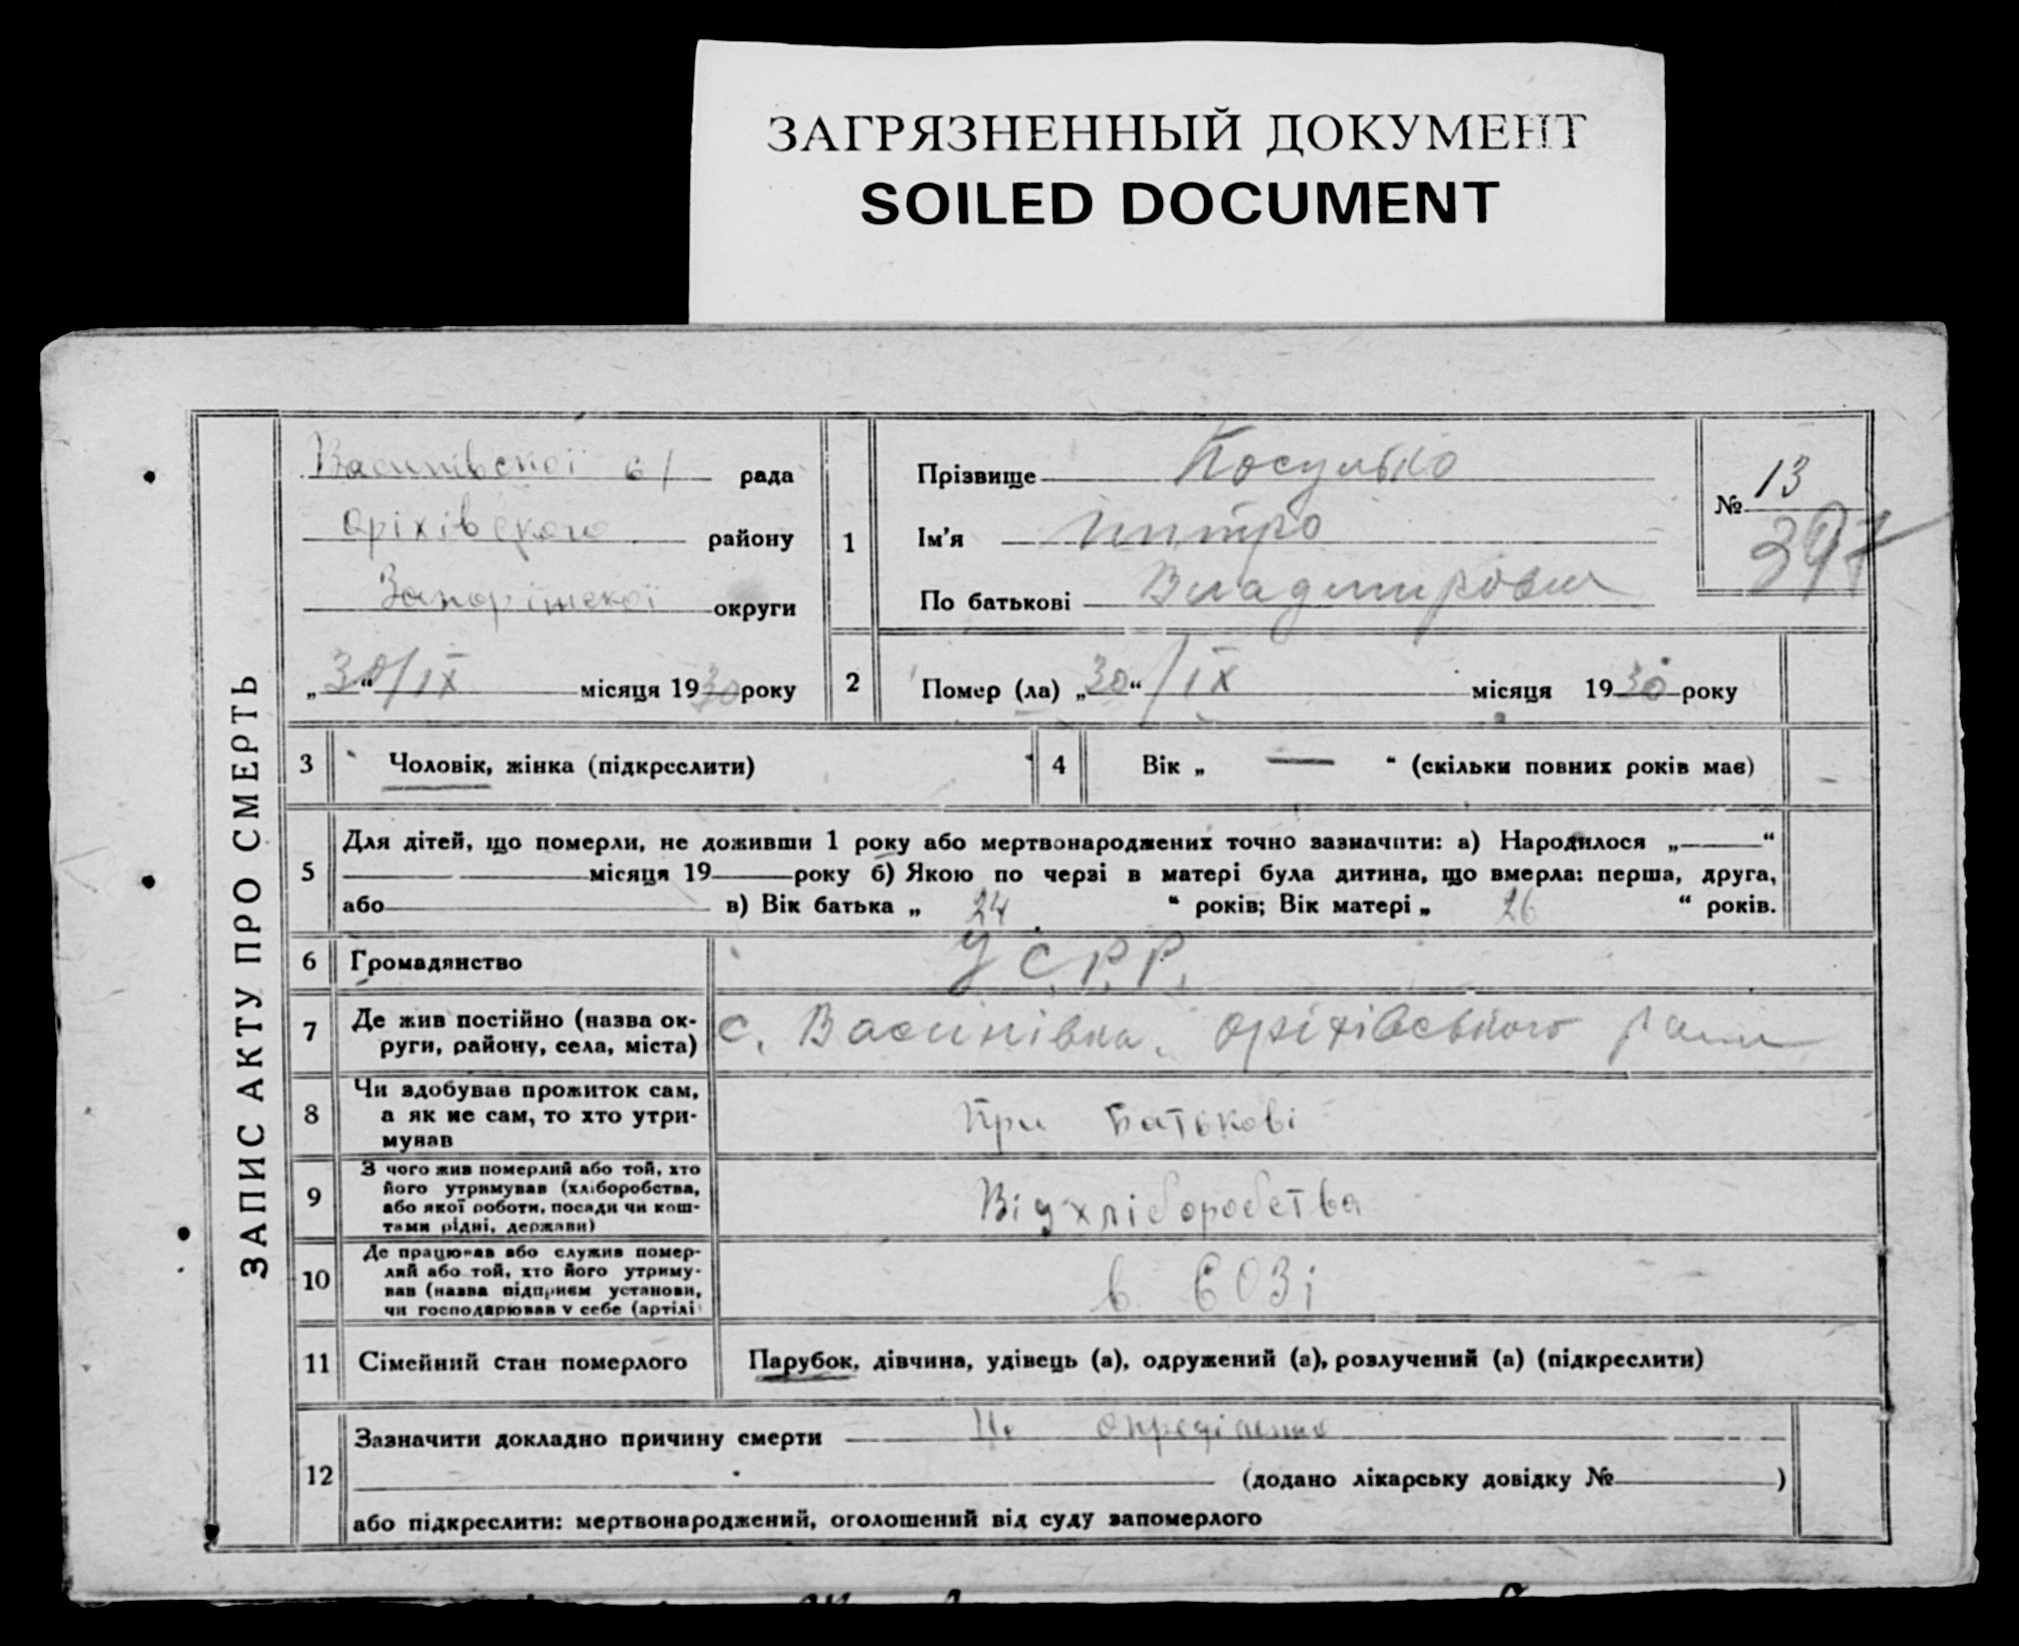 ЗАГРЯЗНЕННЫЙ ДОКУМЕНТ
SOILED DOCUMENT
ЗАПИС АКТУ ПРО СМЕРТЬ
Василівської с/ рада
Оріхівского району
Запоріжскої округи
„30“/IX місяця 1930 року
1
Прізвище Косулько
Ім'я
По батькові Владимирович
№ 13
397
2
Помер (ла) „30“/IX місяця 1930 року
3 Чоловік, жінка (підкреслити)
4 Вік „ — “ (скільки повних років має)
5
Для дітей, що померли, не доживши 1 року або мертвонароджених точно зазначити: а) Народилося „ “
місяця 19 року б) Якою по черзі в матері була дитина, що вмерла: перша, друга,
або в) Вік батька „ 24 “ років; Вік матері „ 26 “ років.
6 Громадянство У.С.Р.Р.
7 Де жив постійно (назва ок-
руги, району, села, міста)
с. Василівка, Оріхівського
8 Чи здобував прожиток сам,
а як не сам, то хто утри-
мував
При батькові
9 З чого жив померлий або той, хто
його утримував (хліборобства,
або якої роботи, посади чи кош-
тами рідні, держави)
Від хліборобства
10 Де працював або служив помер-
лий або той, хто його утриму-
вав (назва підприєм установи,
чи господарював у себе (артілі
в СОЗі
11 Сімейний стан померлого
Парубок, дівчина, удівець (а), одружений (а), розлучений (а) (підкреслити)
12
Зазначити докладно причину смерти Не опреділено
(додано лікарську довідку № )
або підкреслити: мертвонароджений, оголошений від суду запомерлого